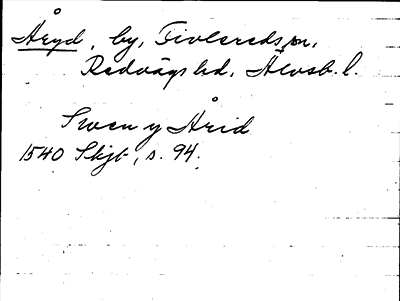 Åryd, by, Tivleredssn,
Redvägs hd, Älvsb. l.
Swen y Årid
1540 Skjb, s. 94.